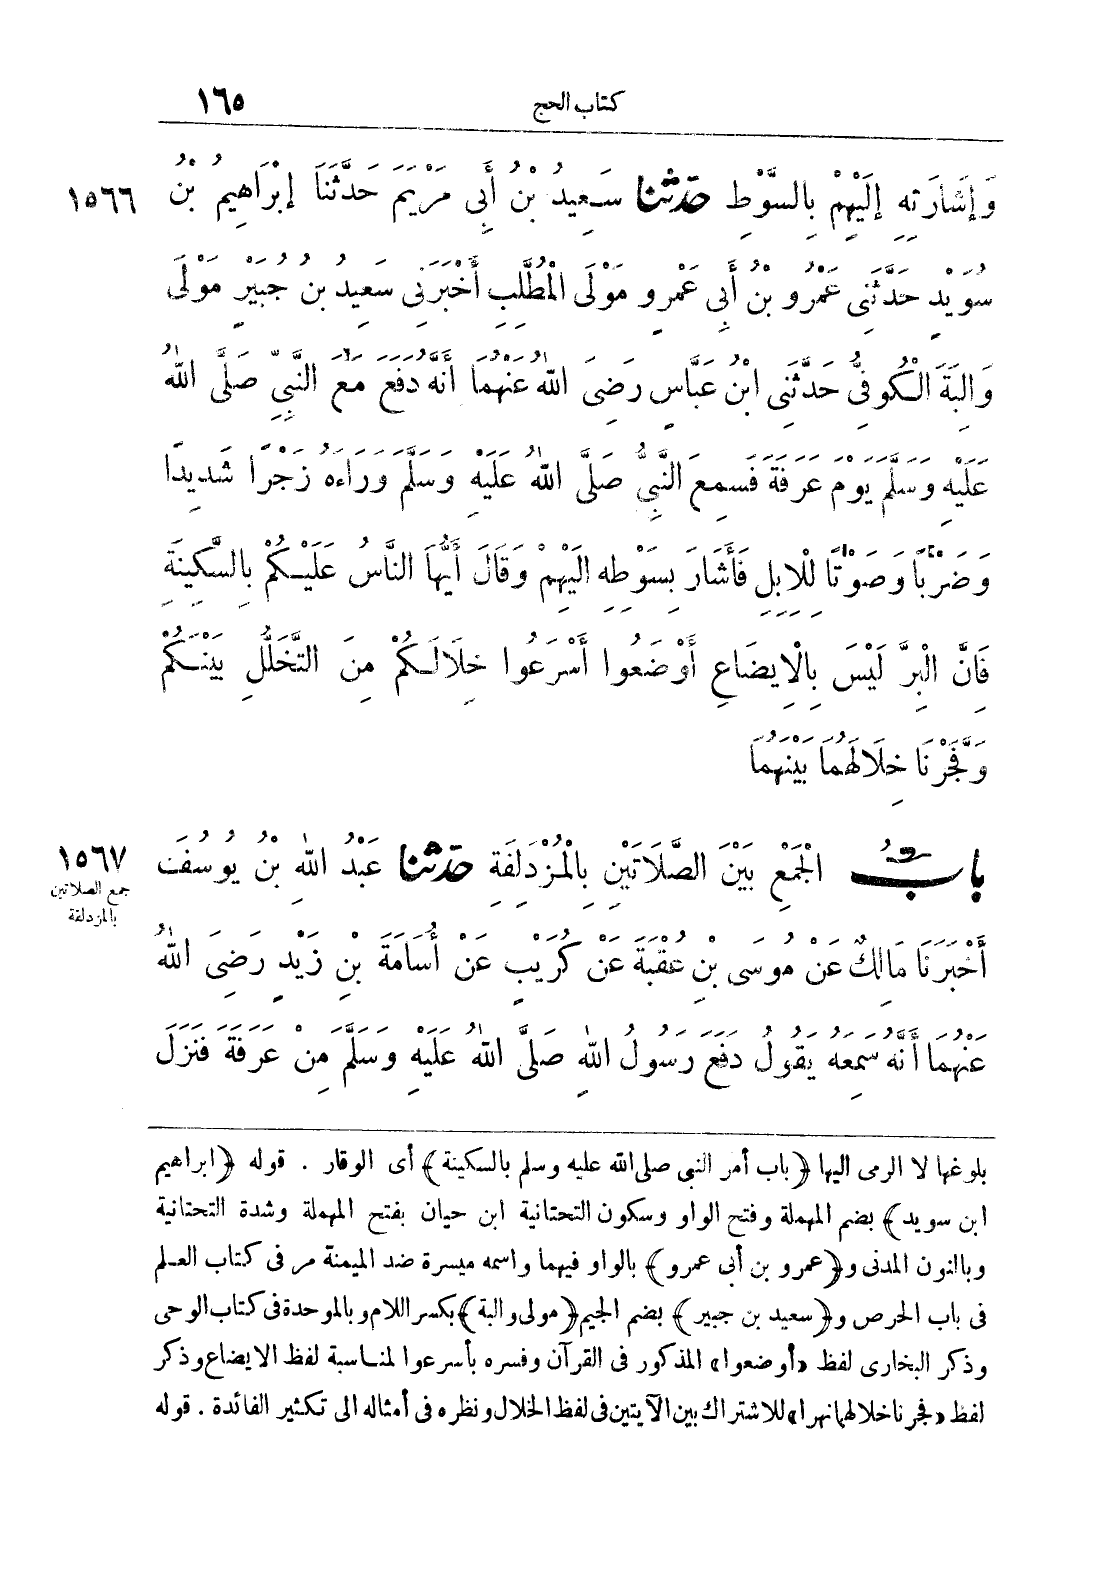 كتاب الحج ١٦٥
وَإِشَارَتِهِ إِلَيْهِمْ بِالسَّوْطِ حَدَّثَنَا سَعِيدُ بْنُ أَبِي مَرْيَمَ حَدَّثَنَا إِبْرَاهِيمُ بْنُ ١٥٦٦
سُوَيْدٍ حَدَّثَنِى عَمْرُو بْنُ أَبِى عَمْرٍو مَوْلَى الْمُطَّلِبِ أَخْبَرَنِى سَعِيدُ بْنُ جُبَيْرٍ مَوْلَى
وَالِبَةَ الْكُوفِىُّ حَدَّثَنِى ابْنُ عَبَّاسٍ رَضِىَ اللهُ عَنْهُمَا أَنَّهُ دَفَعَ مَعَ النَّبِىِّ صَلَّى اللهُ
عَلَيْهِ وَسَلَّمَ يَوْمَ عَرَفَةَ فَسَمِعَ النَّبِىُّ صَلَّى اللهُ عَلَيْهِ وَسَلَّمَ وَرَاءَهُ زَجْرًا شَدِيدًا
وَضَرْبًا وَصَوْتًا لِلْإِبِلِ فَأَشَارَ بِسَوْطِهِ إِلَيْهِمْ وَقَالَ أَيُّهَا النَّاسُ عَلَيْكُمْ بِالسَّكِينَةِ
فَإِنَّ الْبِرَّ لَيْسَ بِالْإِيضَاعِ أَوْضَعُوا أَسْرَعُوا خِلَالَكُمْ مِنَ التَّخَلُّلِ بَيْنَكُمْ
وَفَجَّرْنَا خِلَالَهُمَا بَيْنَهُمَا
بَابُ الْجَمْعِ بَيْنَ الصَّلَاتَيْنِ بِالْمُزْدَلِفَةِ حَدَّثَنَا عَبْدُ اللهِ بْنُ يُوسُفَ ١٥٦٧
جمع الصلاتين
بالمزدلفة
أَخْبَرَنَا مَالِكٌ عَنْ مُوسَى بْنِ عُقْبَةَ عَنْ كُرَيْبٍ عَنْ أُسَامَةَ بْنِ زَيْدٍ رَضِىَ اللهُ
عَنْهُمَا أَنَّهُ سَمِعَهُ يَقُولُ دَفَعَ رَسُولُ اللهِ صَلَّى اللهُ عَلَيْهِ وَسَلَّمَ مِنْ عَرَفَةَ فَنَزَلَ
بلوغها لا الرمى اليها ﴿باب أمر النبى صلى الله عليه وسلم بالسكينة﴾ أى الوقار . قوله ﴿ابراهيم
ابن سويد﴾ بضم المهملة وفتح الواو وسكون التحتانية ابن حيان بفتح المهملة وشدة التحتانية
وبالنون المدنى و﴿عمرو بن أبى عمرو﴾ بالواو فيهما واسمه ميسرة ضد الميمنة مر فى كتاب العلم
فى باب الحرص و﴿سعيد بن جبير﴾ بضم الجيم ﴿مولى والبة﴾ بكسر اللام وبالموحدة فى كتاب الوحى
وذكر البخارى لفظ «أوضعوا» المذكور فى القرآن وفسره بأسرعوا لمناسبة لفظ الايضاع وذكر
لفظ «فجرنا خلالهما نهرا» للاشتراك بين الآيتين فى لفظ الخلال ونظره فى أمثاله الى تكثير الفائدة . قوله